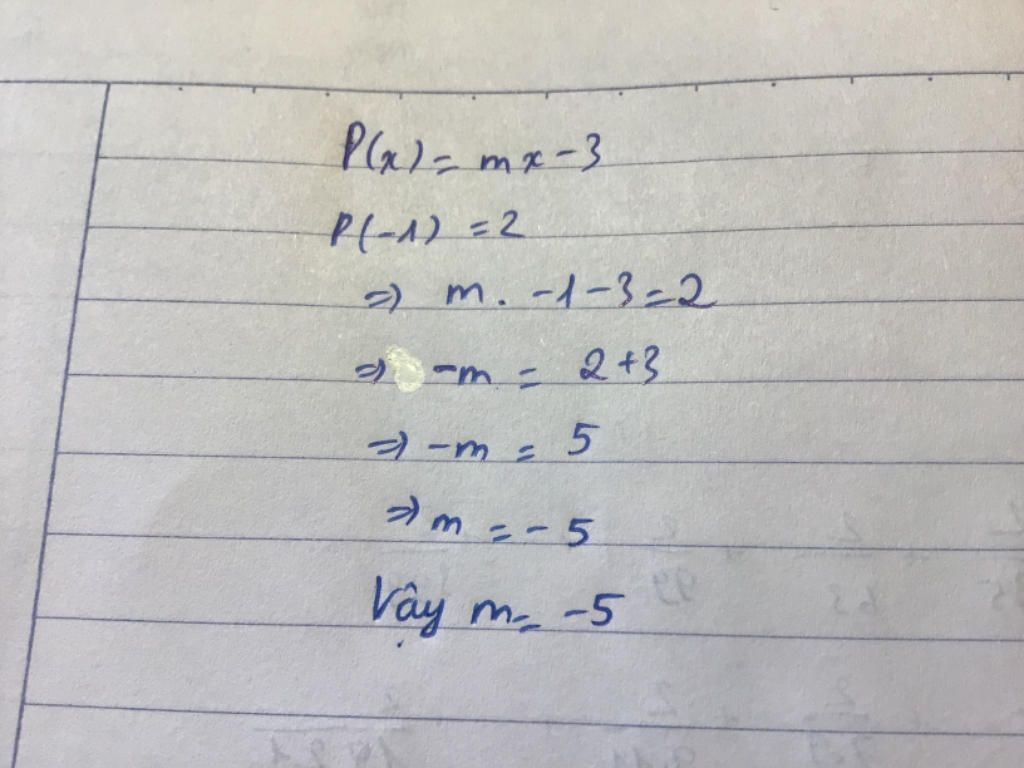 P(x) = mx - 3
P(-1) = 2
=> m . -1 - 3 = 2
=> -m = 2 + 3
=> -m = 5
=> m = - 5
Vậy m = -5